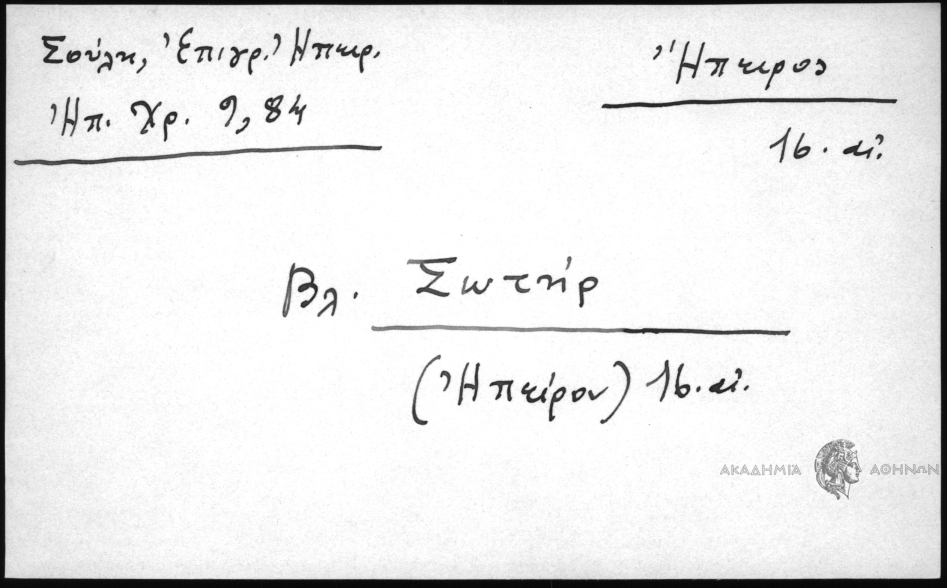 Σούλη, Ἐπιγρ. Ἠπειρ.
Ἠπ. Χρ. 9, 84
Ἤπειρος
16. αἰ.
Βλ. Σωτήρ
(Ἠπείρου) 16. αἰ.
ΑΚΑΔΗΜΙΑ ΑΘΗΝΩΝ